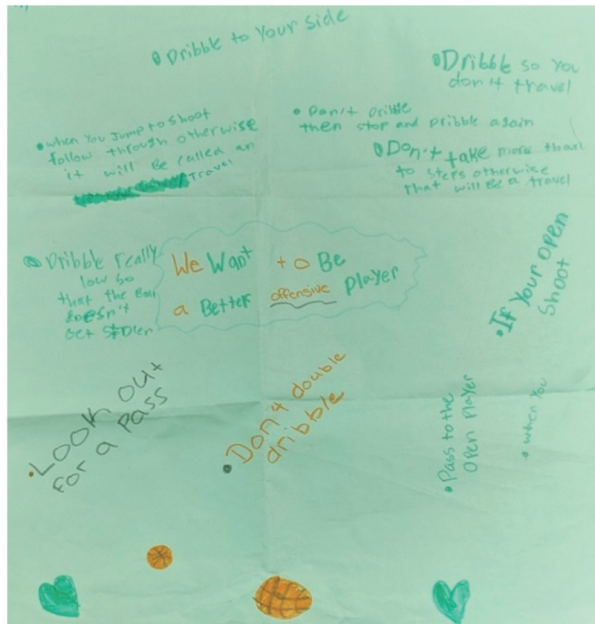 Dribble to Your Side
Dribble so you
don't travel
when You Jump to shoot
follow through otherwise
it will Be called an
Travel
Don't Drible
then stop and Dribble again
Don't take more than
to steps otherwise
that will Be a travel
Dribble really
low so
that the Ball
doesn't
Get Stolen
We Want to Be
a Better offensive Player
If Your Open
Shoot
Look out
for a pass
Don't double
dribble
Pass to the
Open Player
when You